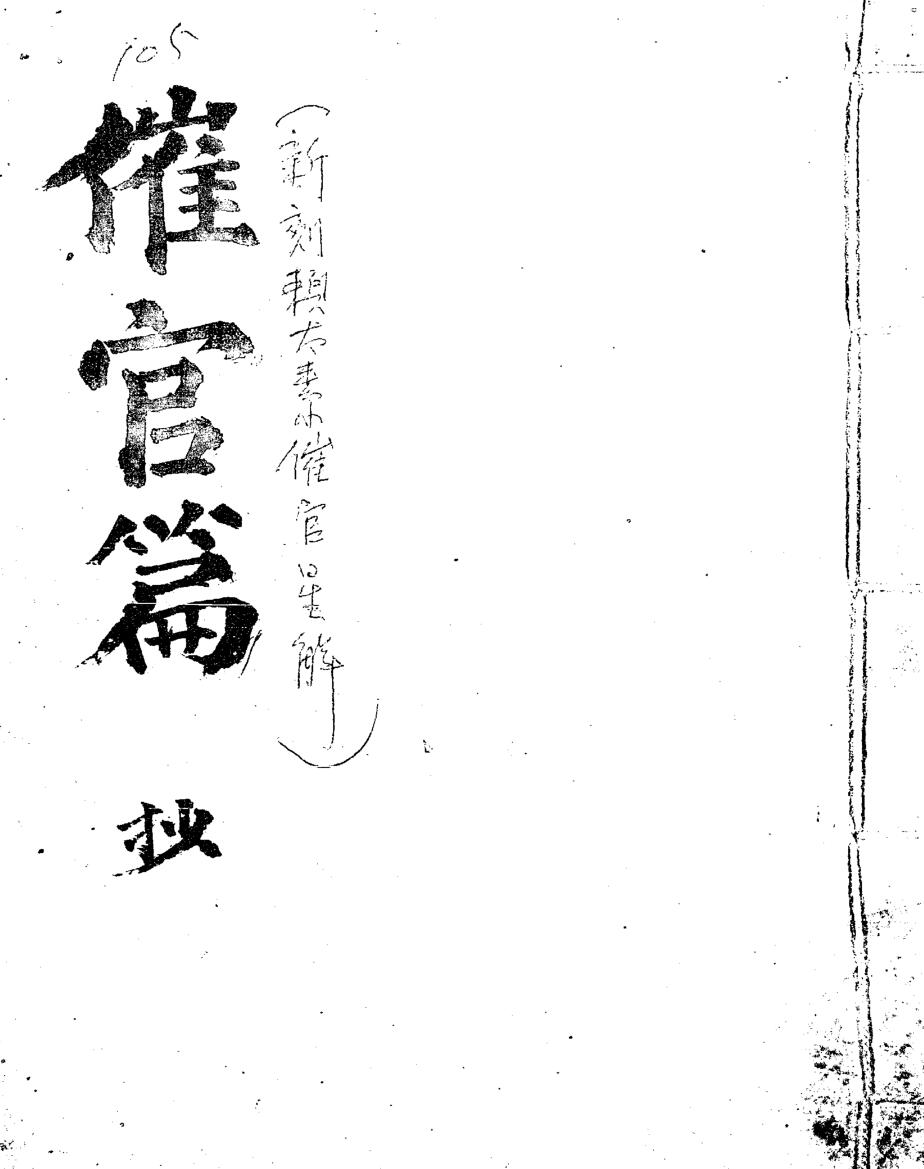 105
(新刻賴太素催官星解)
催官篇 抄